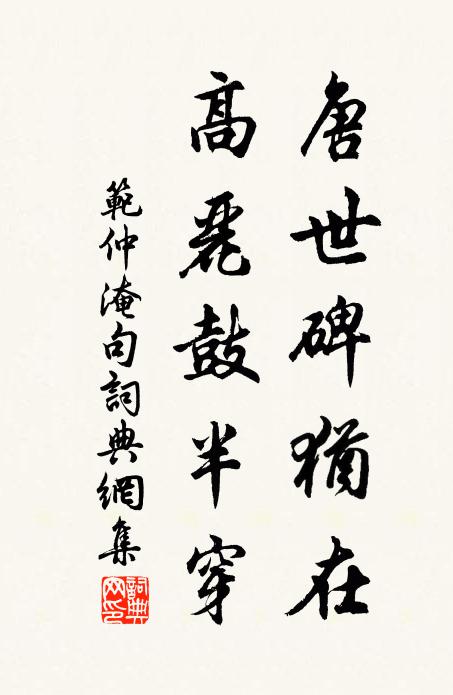 唐世碑猶在
高麗鼓半穿
範仲淹句詞典網集
詞典網印